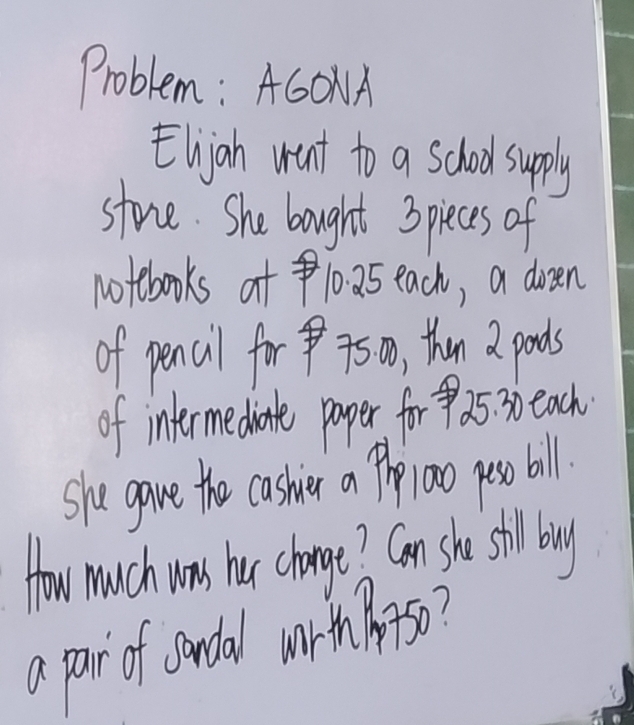 Problem: AGONA
Elijah went to a school supply
store. She bought 3 pieces of
notebooks at ₱10.25 each, a dozen
of pencil for ₱ 75.00, then 2 pads
of intermediate paper for ₱25.30 each.
She gave the cashier a Php1000 peso bill.
How much was her change? Can she still buy
a pair of sandal worth Php750?